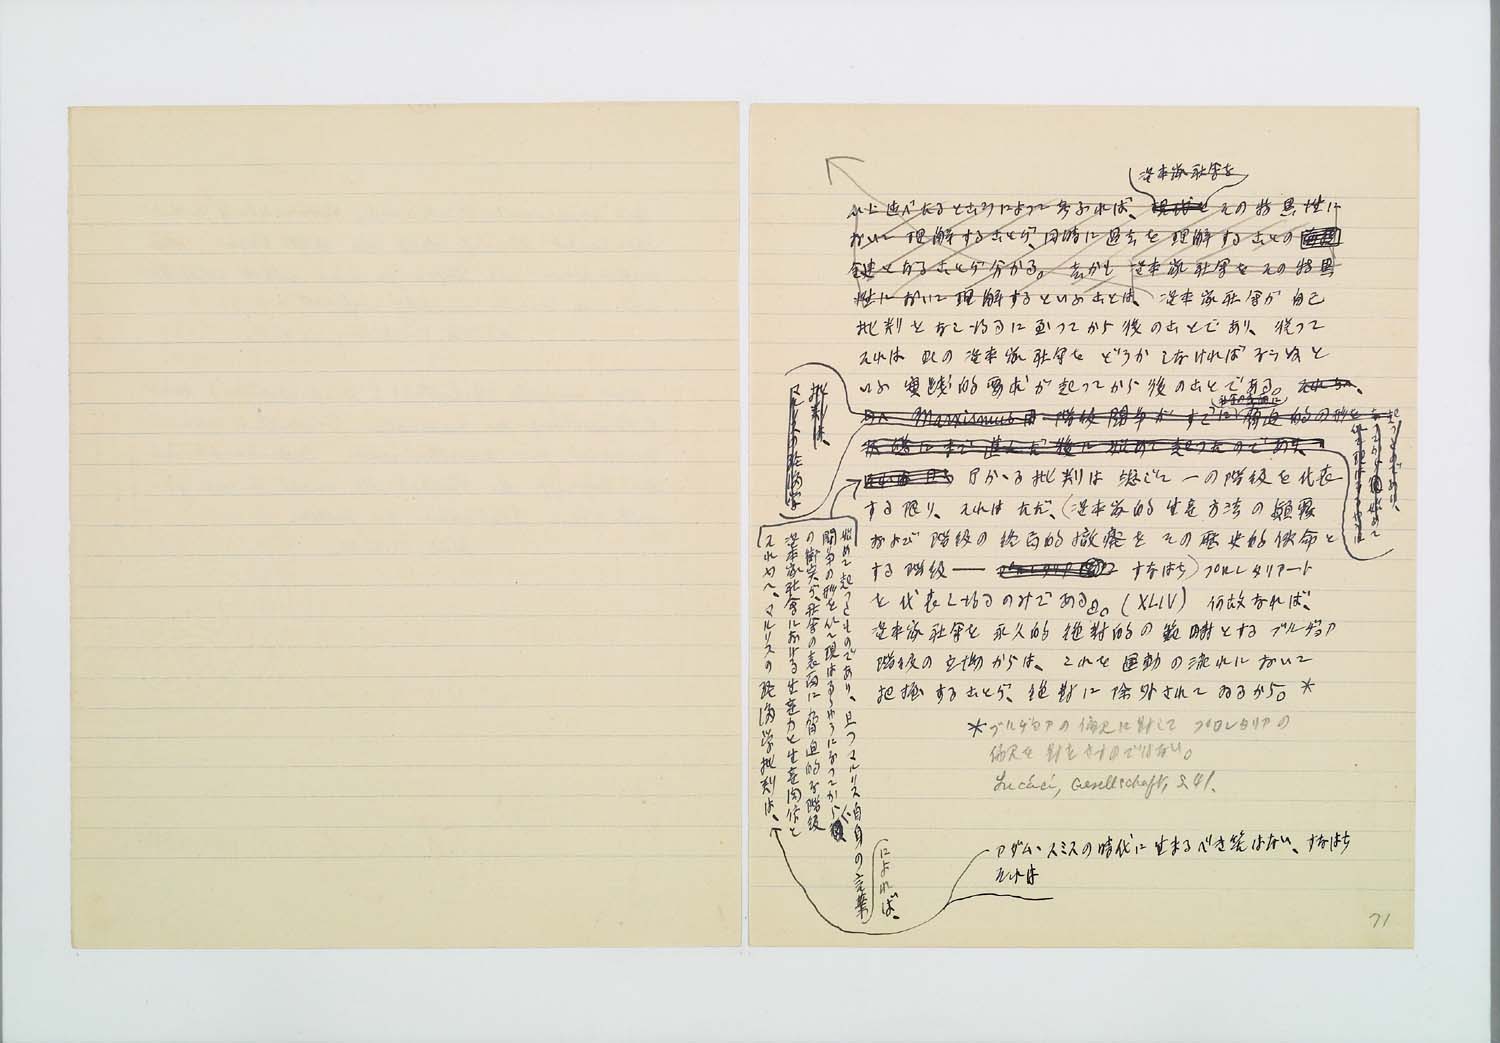 資本家社会を
以上述べたるところによつて考ふれば、現代をその特異性に
おいて理解することが、同時に過去を理解することの
鍵となることが分かる。しかも資本家社会をその特異
性において理解するといふことは、資本家社会が自己
批判をなし得るに至つてから後のことであり、従つて
それは此の資本家社会をどうかしなければならぬと
いふ実践的要求が起つてから後のことである。それ故、
Marxismus 階級闘争がすでに脅迫的の形を
状態にまで進んだ後に始めて起つたのである。
かかる批判は総じて一の階級を代表
する限り、それはただ、(資本家的生産方法の顛覆
および階級の終局的撤廃をその歴史的使命と
する階級── すなはち)プロレタリアート
を代表し得るのみである。(XLIV) 何故なれば、
資本家社会を永久的絶対的の範疇とするブルヂョア
階級の立場からは、これを運動の流れにおいて
把握することが、絶対に除外されてゐるから。*
*ブルヂョアの偏見に対して プロレタリアの
偏見を対立さすのではない。
Gesellschaft, S. 41.
アダム・スミスの時代に生まるべき筈はない、すなはち
それは
マルクスの経済学
批判は、
始めて起つたものであり、且つマルクス自身の言葉
によれば、
闘争の形を以て現はるるやうになつてから
の衝突が、社会の表面に脅迫的な階級
資本家社会における生産力と生産関係と
それ故、マルクスの経済学批判は、
71